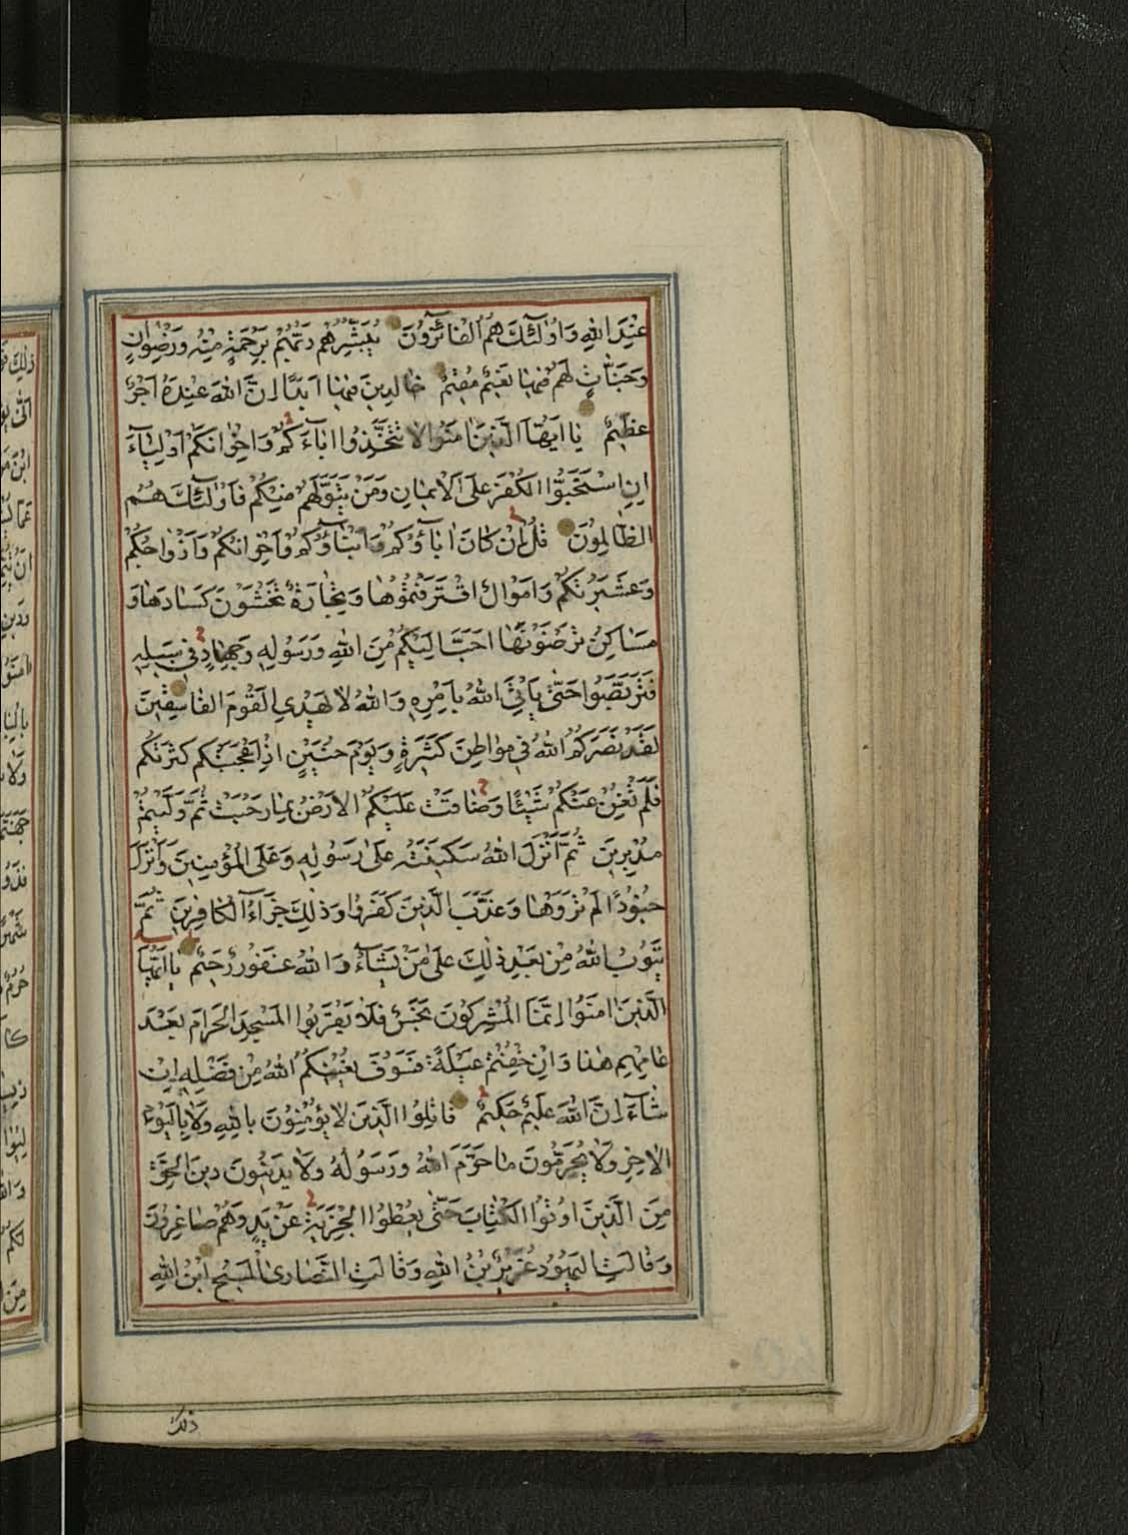 عِنْدَ اللهِ وَاُولٰٓئِكَ هُمُ الْفَآئِزُونَ يُبَشِّرُهُمْ رَبُّهُمْ بِرَحْمَةٍ مِنْهُ وَرِضْوٰانٍ
وَجَنّٰاتٍ لَهُمْ فٖيهٰا نَعٖيمٌ مُقٖيمٌ خٰالِدٖينَ فٖيهٰا اَبَدًا اِنَّ اللهَ عِنْدَهُ اَجْرٌ
عَظٖيمٌ يٰا اَيُّهَا الَّذٖينَ اٰمَنُوا لٰا تَتَّخِذُوا اٰبٰآءَكُمْ وَاِخْوٰانَكُمْ اَوْلِيٰآءَ
اِنِ اسْتَحَبُّوا الْكُفْرَ عَلَى الْاٖيمٰانِ وَمَنْ يَتَوَلَّهُمْ مِنْكُمْ فَاُولٰٓئِكَ هُمُ
الظّٰالِمُونَ قُلْ اِنْ كٰانَ اٰبٰآؤُكُمْ وَاَبْنٰآؤُكُمْ وَاِخْوٰانُكُمْ وَاَزْوٰاجُكُمْ
وَعَشٖيرَتُكُمْ وَاَمْوٰالٌ اقْتَرَفْتُمُوهٰا وَتِجٰارَةٌ تَخْشَوْنَ كَسٰادَهٰا وَ
مَسٰاكِنُ تَرْضَوْنَهٰا اَحَبَّ اِلَيْكُمْ مِنَ اللهِ وَرَسُولِهِ وَجِهٰادٍ فٖي سَبٖيلِهِ
فَتَرَبَّصُوا حَتّٰى يَأْتِيَ اللهُ بِاَمْرِهِ وَاللهُ لٰا يَهْدِي الْقَوْمَ الْفٰاسِقٖينَ
لَقَدْ نَصَرَكُمُ اللهُ فٖي مَوٰاطِنَ كَثٖيرَةٍ وَيَوْمَ حُنَيْنٍ اِذْ اَعْجَبَتْكُمْ كَثْرَتُكُمْ
فَلَمْ تُغْنِ عَنْكُمْ شَيْئًا وَضٰاقَتْ عَلَيْكُمُ الْاَرْضُ بِمٰا رَحُبَتْ ثُمَّ وَلَّيْتُمْ
مُدْبِرٖينَ ثُمَّ اَنْزَلَ اللهُ سَكٖينَتَهُ عَلٰى رَسُولِهِ وَعَلَى الْمُؤْمِنٖينَ وَاَنْزَلَ
جُنُودًا لَمْ تَرَوْهٰا وَعَذَّبَ الَّذٖينَ كَفَرُوا وَذٰلِكَ جَزٰآءُ الْكٰافِرٖينَ ثُمَّ
يَتُوبُ اللهُ مِنْ بَعْدِ ذٰلِكَ عَلٰى مَنْ يَشٰآءُ وَاللهُ غَفُورٌ رَحٖيمٌ يٰا اَيُّهَا
الَّذٖينَ اٰمَنُوا اِنَّمَا الْمُشْرِكُونَ نَجَسٌ فَلٰا يَقْرَبُوا الْمَسْجِدَ الْحَرٰامَ بَعْدَ
عٰامِهِمْ هٰذٰا وَاِنْ خِفْتُمْ عَيْلَةً فَسَوْفَ يُغْنٖيكُمُ اللهُ مِنْ فَضْلِهِ اِنْ
شٰآءَ اِنَّ اللهَ عَلٖيمٌ حَكٖيمٌ قٰاتِلُوا الَّذٖينَ لٰا يُؤْمِنُونَ بِاللهِ وَلٰا بِالْيَوْمِ
الْاٰخِرِ وَلٰا يُحَرِّمُونَ مٰا حَرَّمَ اللهُ وَرَسُولُهُ وَلٰا يَدٖينُونَ دٖينَ الْحَقِّ
مِنَ الَّذٖينَ اُوتُوا الْكِتٰابَ حَتّٰى يُعْطُوا الْجِزْيَةَ عَنْ يَدٍ وَهُمْ صٰاغِرُونَ
وَقٰالَتِ الْيَهُودُ عُزَيْرٌ بْنُ اللهِ وَقٰالَتِ النَّصٰارَى الْمَسٖيحُ ابْنُ اللهِ
ذلك